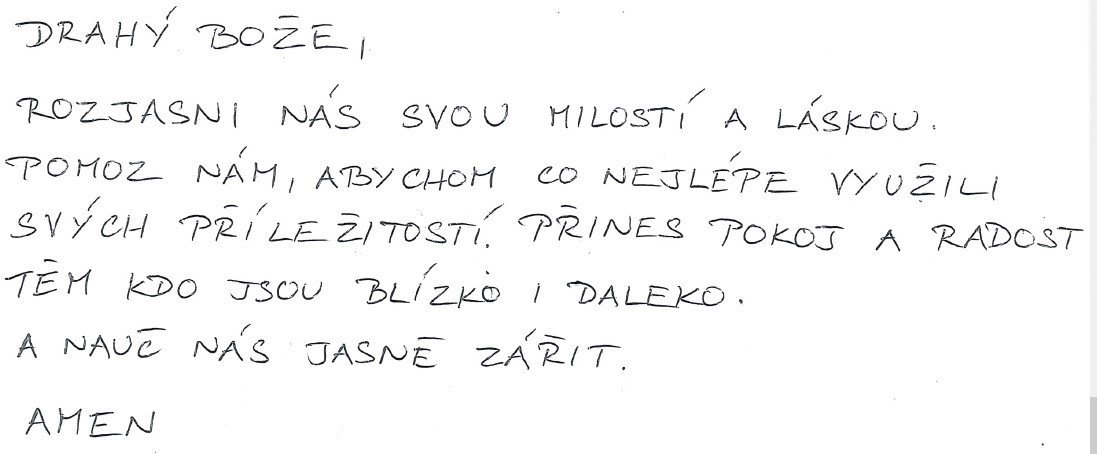 DRAHÝ BOŽE,
ROZJASNI NÁS SVOU MILOSTÍ A LÁSKOU.
POMOZ NÁM, ABYCHOM CO NEJLÉPE VYUŽILI
SVÝCH PŘÍLEŽITOSTÍ. PŘINES POKOJ A RADOST
TĚM KDO JSOU BLÍZKO I DALEKO.
A NAUČ NÁS JASNĚ ZÁŘIT.
AMEN